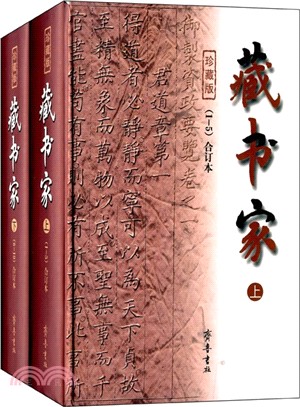 藏书家
上
珍藏版
(1-5)合订本
御製資政要覽卷之一
君道章第一
得道者必靜靜而寧可以離天下貞故
至精無象而萬物以成至聖無事而千
齐鲁书社
珍藏版
藏书家
上
(1-5)合订本
珍藏版
藏书家
下
(6-10)合订本